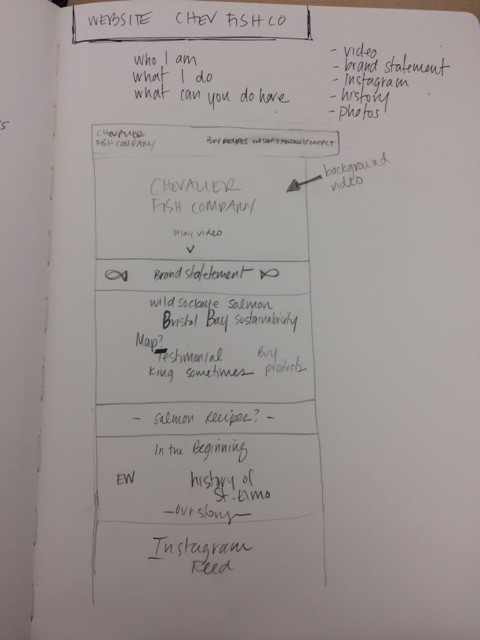 WEBSITE CHEV FISH CO
who I am
what I do
what can you do here
- video
- brand statement
- instagram
- history
- photos
CHEVALIER
FISH COMPANY
BUY RECIPES CONTACT
background
video
CHEVALIER
FISH COMPANY
PLAY VIDEO
Brand statetement
wild sockeye salmon
Bristol Bay sustainability
Map?
Testimonial
King sometimes
Buy
products
- Salmon Recipes? -
In the Beginning
EW
history of
St. Elmo
- our story -
Instagram
Feed